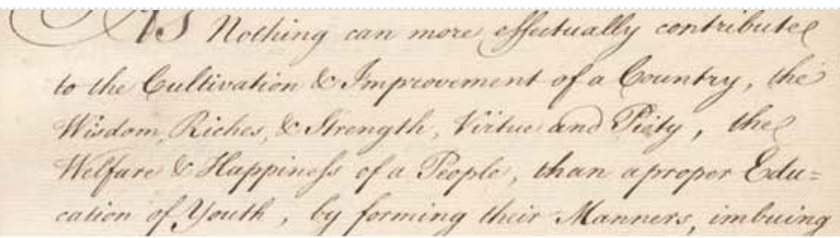 As Nothing can more effectually contribute
to the Cultivation & Improvement of a Country, the
Wisdom, Riches, & Strength, Virtue and Piety, the
Welfare & Happiness of a People, than a proper Edu=
cation of Youth, by forming their Manners, imbuing